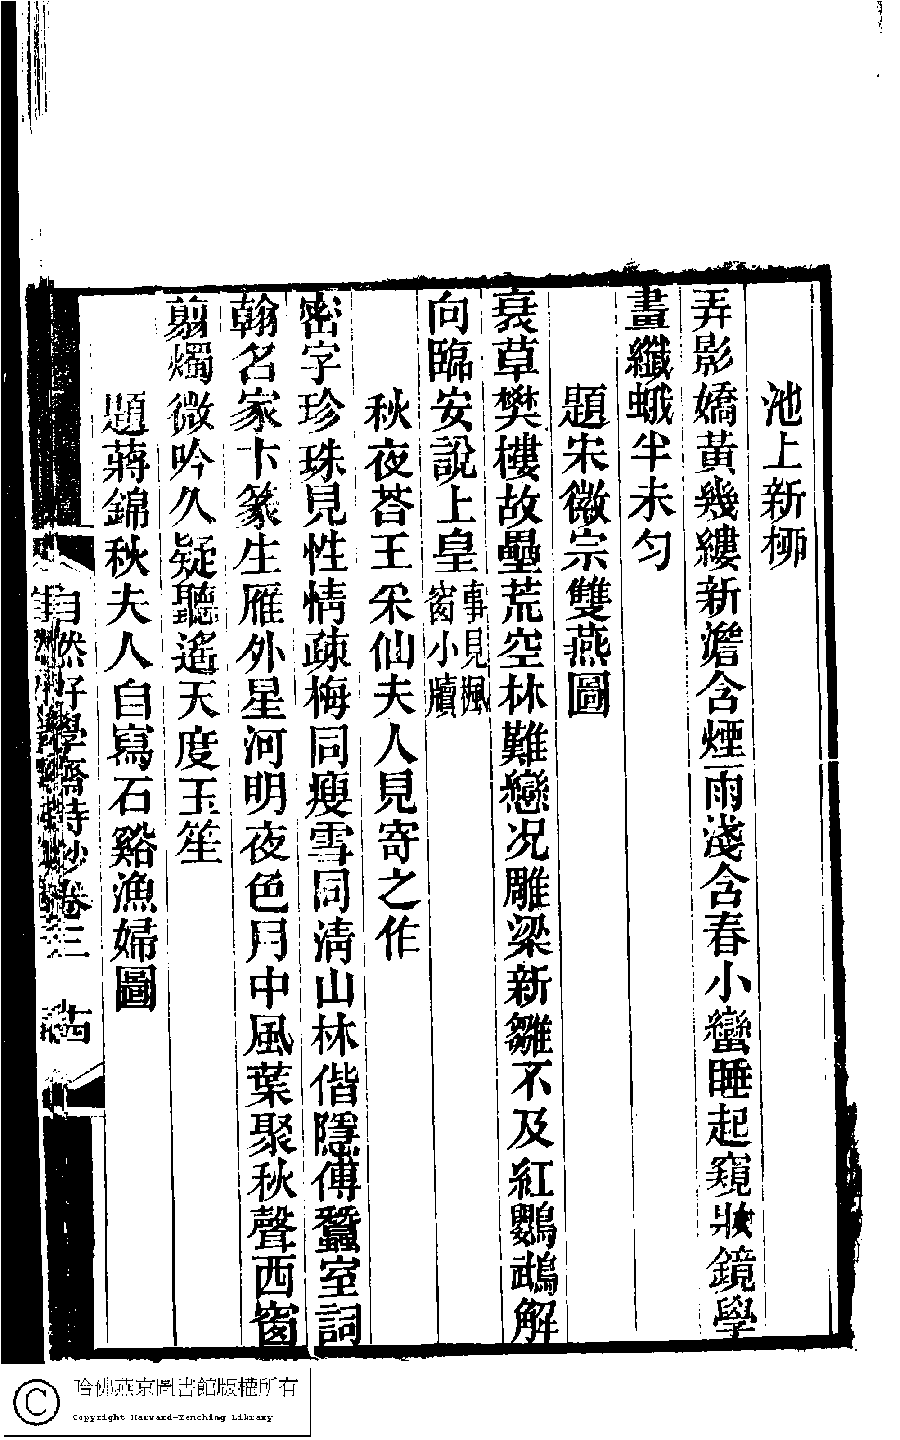 池上新柳
弄影嬌黃幾縷新澹含煙雨淺含春小蠻睡起窺妝鏡學
畫纖蛾半未勻
題宋徽宗雙燕圖
衰草樊樓故壘荒空林難戀況雕梁新雛不及紅鸚鵡解
向臨安說上皇事見楓窗小牘
秋夜荅王采仙夫人見寄之作
密字珍珠見性情疎梅同瘦雪同清山林偕隱傳蠶室詞
翰名家卞篆生雁外星河明夜色月中風葉聚秋聲西窗
翦燭微吟久疑聽遙天度玉笙
題蔣錦秋夫人自寫石谿漁婦圖
自然好學齋詩鈔卷三
哈佛燕京圖書館版權所有
Copyright Harvard-Yenching Library